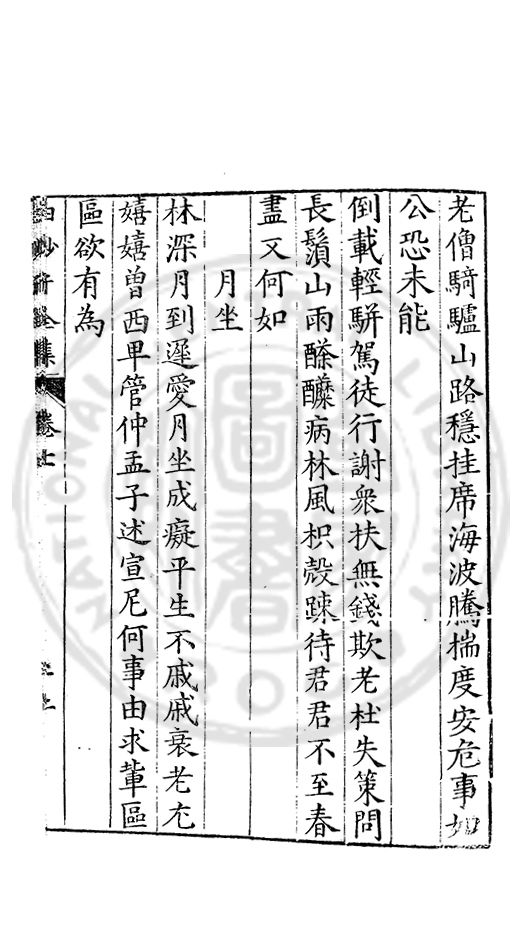 老僧騎驢山路穩挂席海波騰揣度安危事如
公恐未能
倒載輕駢駕徒行謝衆扶無錢欺老杜失策問
長鬚山雨酴醿病林風枳殼踈待君君不至春
盡又何如
月坐
林深月到遲愛月坐成癡平生不戚戚衰老尢
嬉嬉曽西卑管仲孟子述宣尼何事由求輩區
區欲有為
白沙子全集 卷七